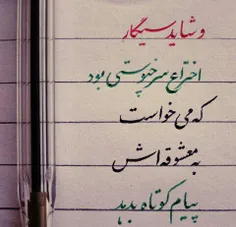 و شاید سیگار
اختراع سرخپوستی بود
که می خواست
به معشوقه اش
پیام کوتاه بدهد